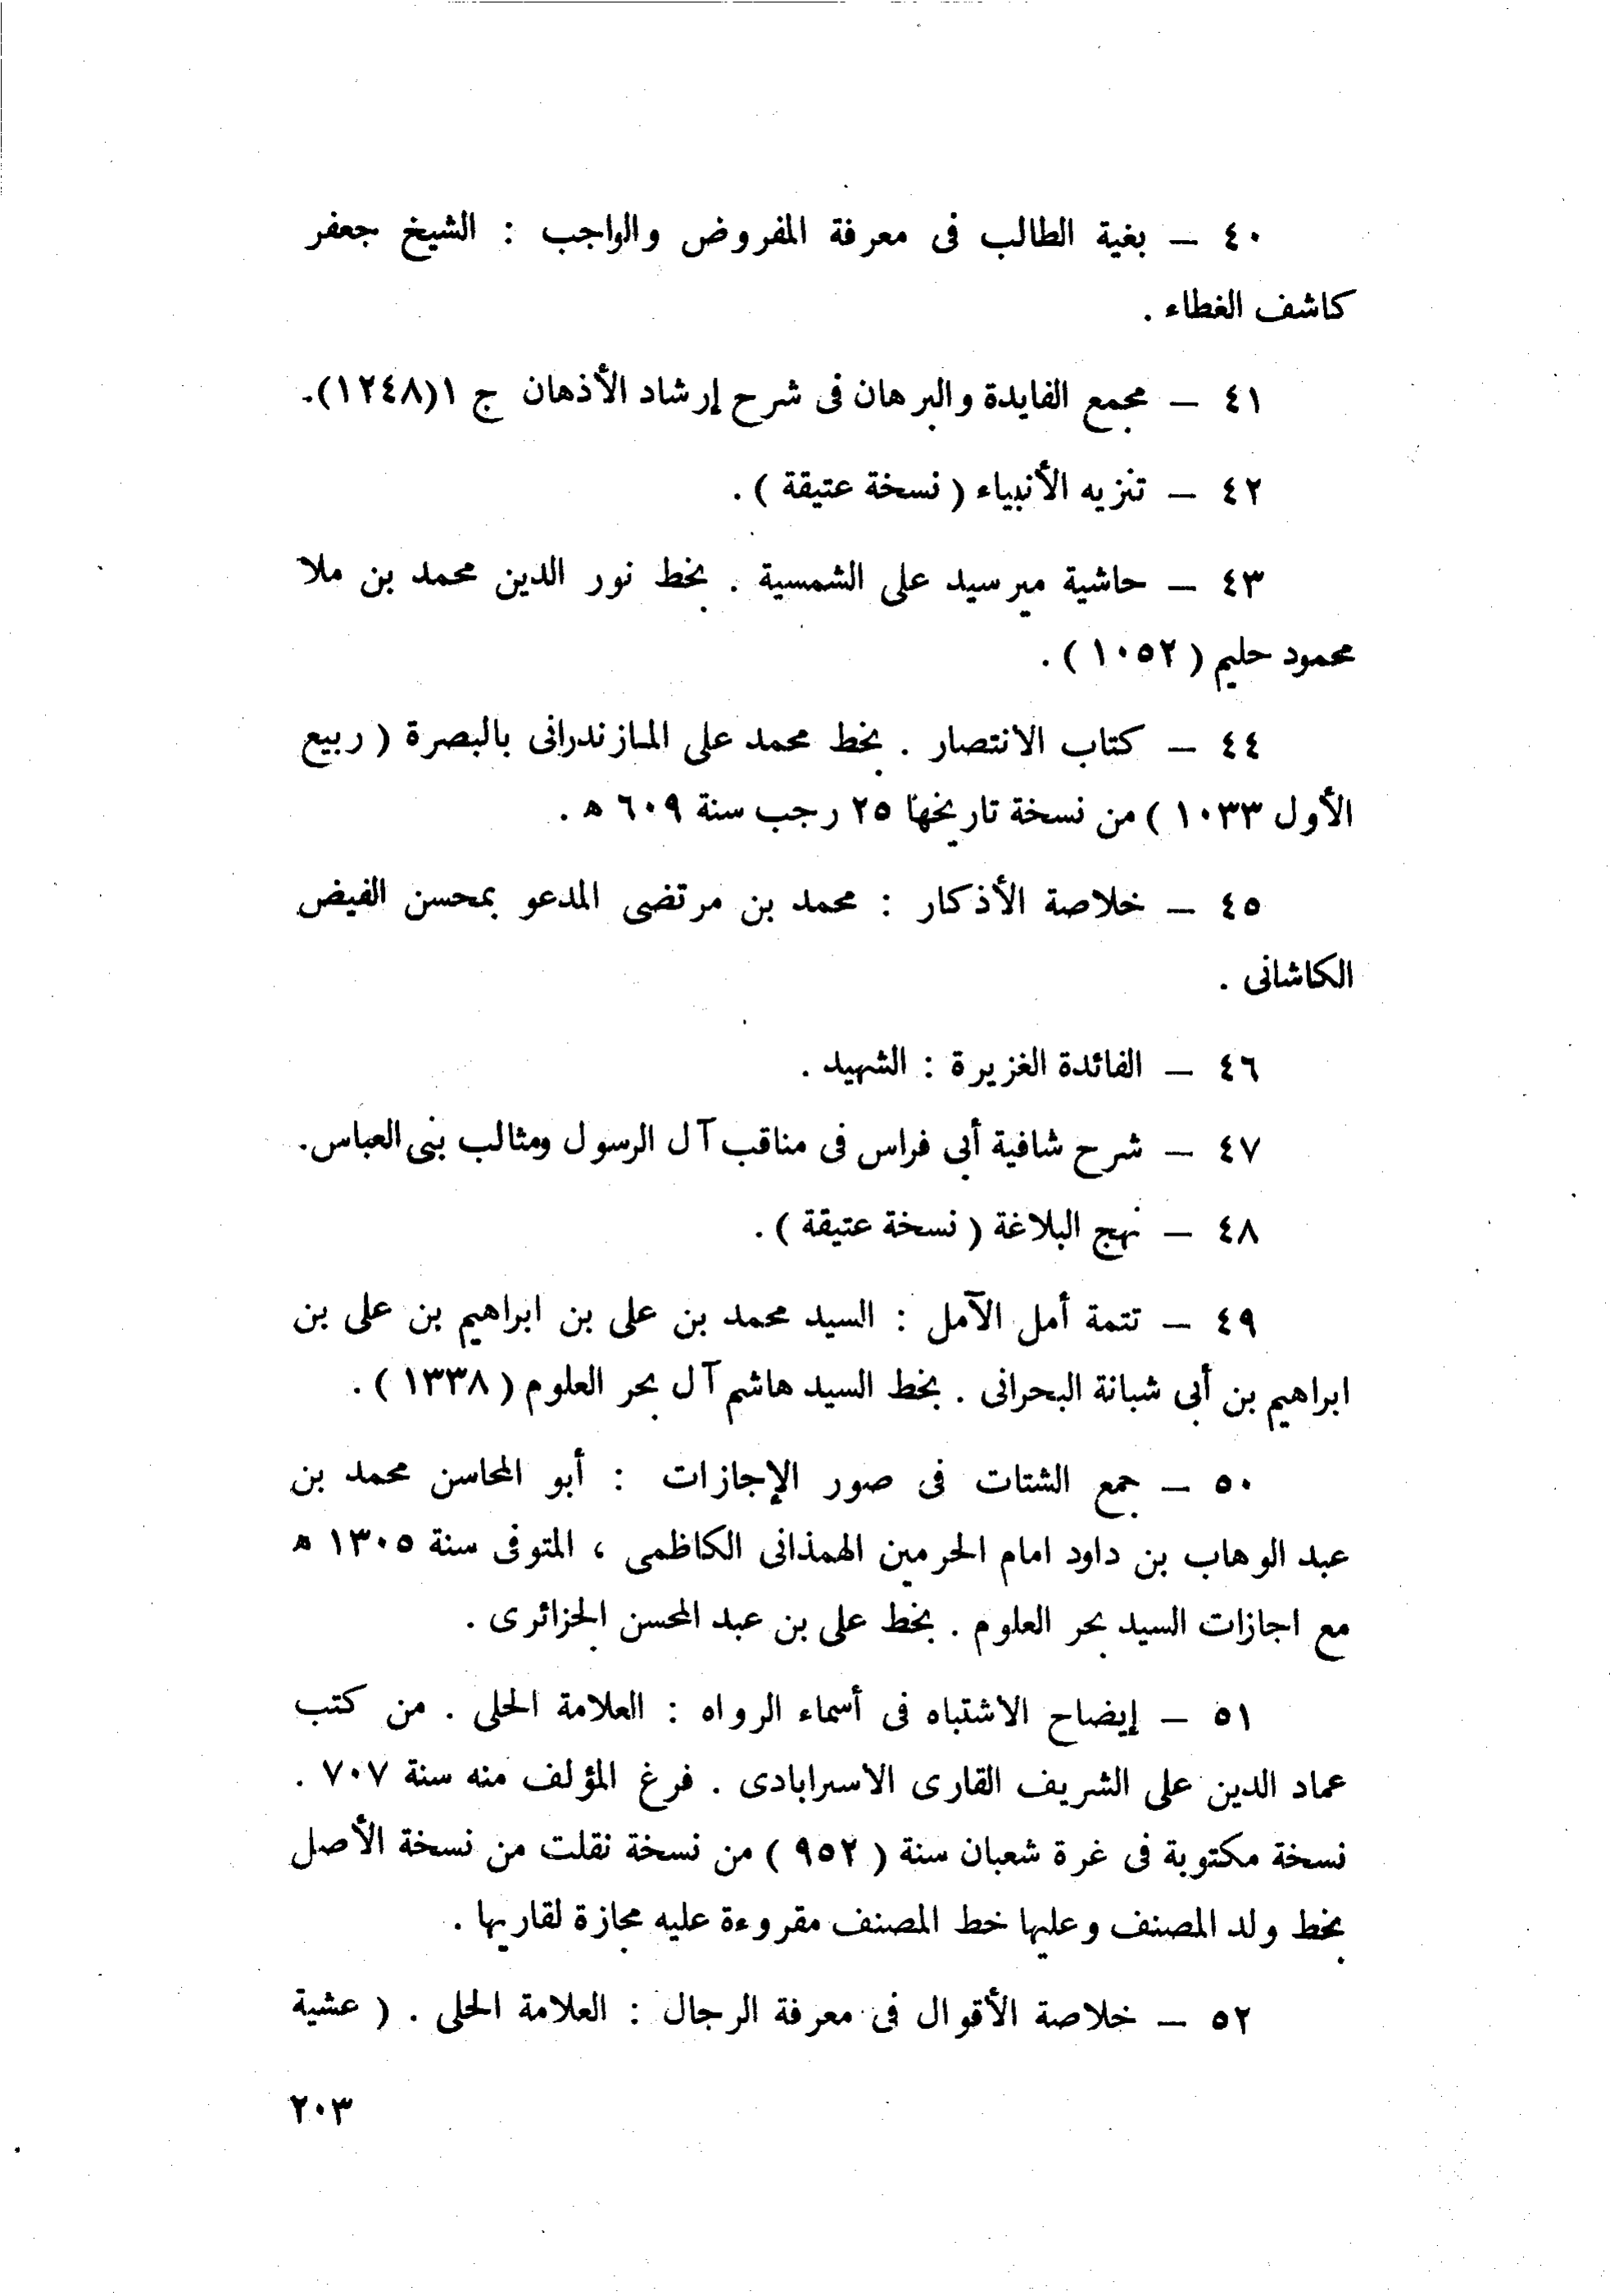 ٤٠ — بغية الطالب فى معرفة المفروض والواجب : الشيخ جعفر
كاشف الغطاء .
٤١ — مجمع الفايدة والبرهان فى شرح إرشاد الأذهان ج ١(١٢٤٨).
٤٢ — تنزيه الأنبياء ( نسخة عتيقة ) .
٤٣ — حاشية مير سيد على الشمسية . بخط نور الدين محمد بن ملا
محمود حليم ( ١٠٥٢ ) .
٤٤ — كتاب الانتصار . بخط محمد على المازندرانى بالبصرة ( ربيع
الأول ١٠٣٣ ) من نسخة تاريخها ٢٥ رجب سنة ٦٠٩ ه .
٤٥ — خلاصة الأذكار : محمد بن مرتضى المدعو بمحسن الفيض
الكاشانى .
٤٦ — الفائدة الغزيرة : الشهيد .
٤٧ — شرح شافية أبى فراس فى مناقب آل الرسول ومثالب بنى العباس.
٤٨ — نهج البلاغة ( نسخة عتيقة ) .
٤٩ — تتمة أمل الآمل : السيد محمد بن على بن ابراهيم بن على بن
ابراهيم بن أبى شبانة البحرانى . بخط السيد هاشم آل بحر العلوم ( ١٣٣٨ ) .
٥٠ — جمع الشتات فى صور الإجازات : أبو المحاسن محمد بن
عبد الوهاب بن داود امام الحرمين الهمذانى الكاظمى ، المتوفى سنة ١٣٠٥ ه
مع اجازات السيد بحر العلوم . بخط على بن عبد المحسن الجزائرى .
٥١ — إيضاح الاشتباه فى أسماء الرواه : العلامة الحلى . من كتب
عماد الدين على الشريف القارى الاسترابادى . فرغ المؤلف منه سنة ٧٠٧ .
نسخة مكتوبة فى غرة شعبان سنة ( ٩٥٢ ) من نسخة نقلت من نسخة الأصل
بخط ولد المصنف وعليها خط المصنف مقروءة عليه مجازة لقاريها .
٥٢ — خلاصة الأقوال فى معرفة الرجال : العلامة الحلى . ( عشية
٢٠٣